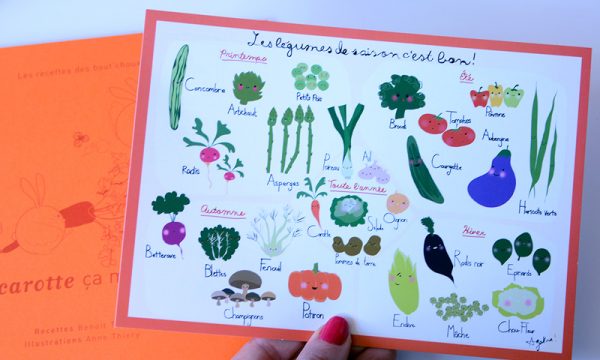 Les recettes des bout'chou
carotte ça m
Recettes Benoît
Illustrations Anne Thiéry
Les légumes de saison c'est bon!
Printemps
Concombre
Artichaut
Petits Pois
Radis
Asperges
Poireau
Ail
Été
Brocoli
Tomates
Poivrons
Aubergine
Courgette
Haricots Verts
Toute l'année
Carotte
Salade
Oignon
Pommes de terre
Automne
Betterave
Blettes
Fenouil
Champignons
Potiron
Hiver
Radis noir
Epinards
Endive
Mâche
Chou-Fleur